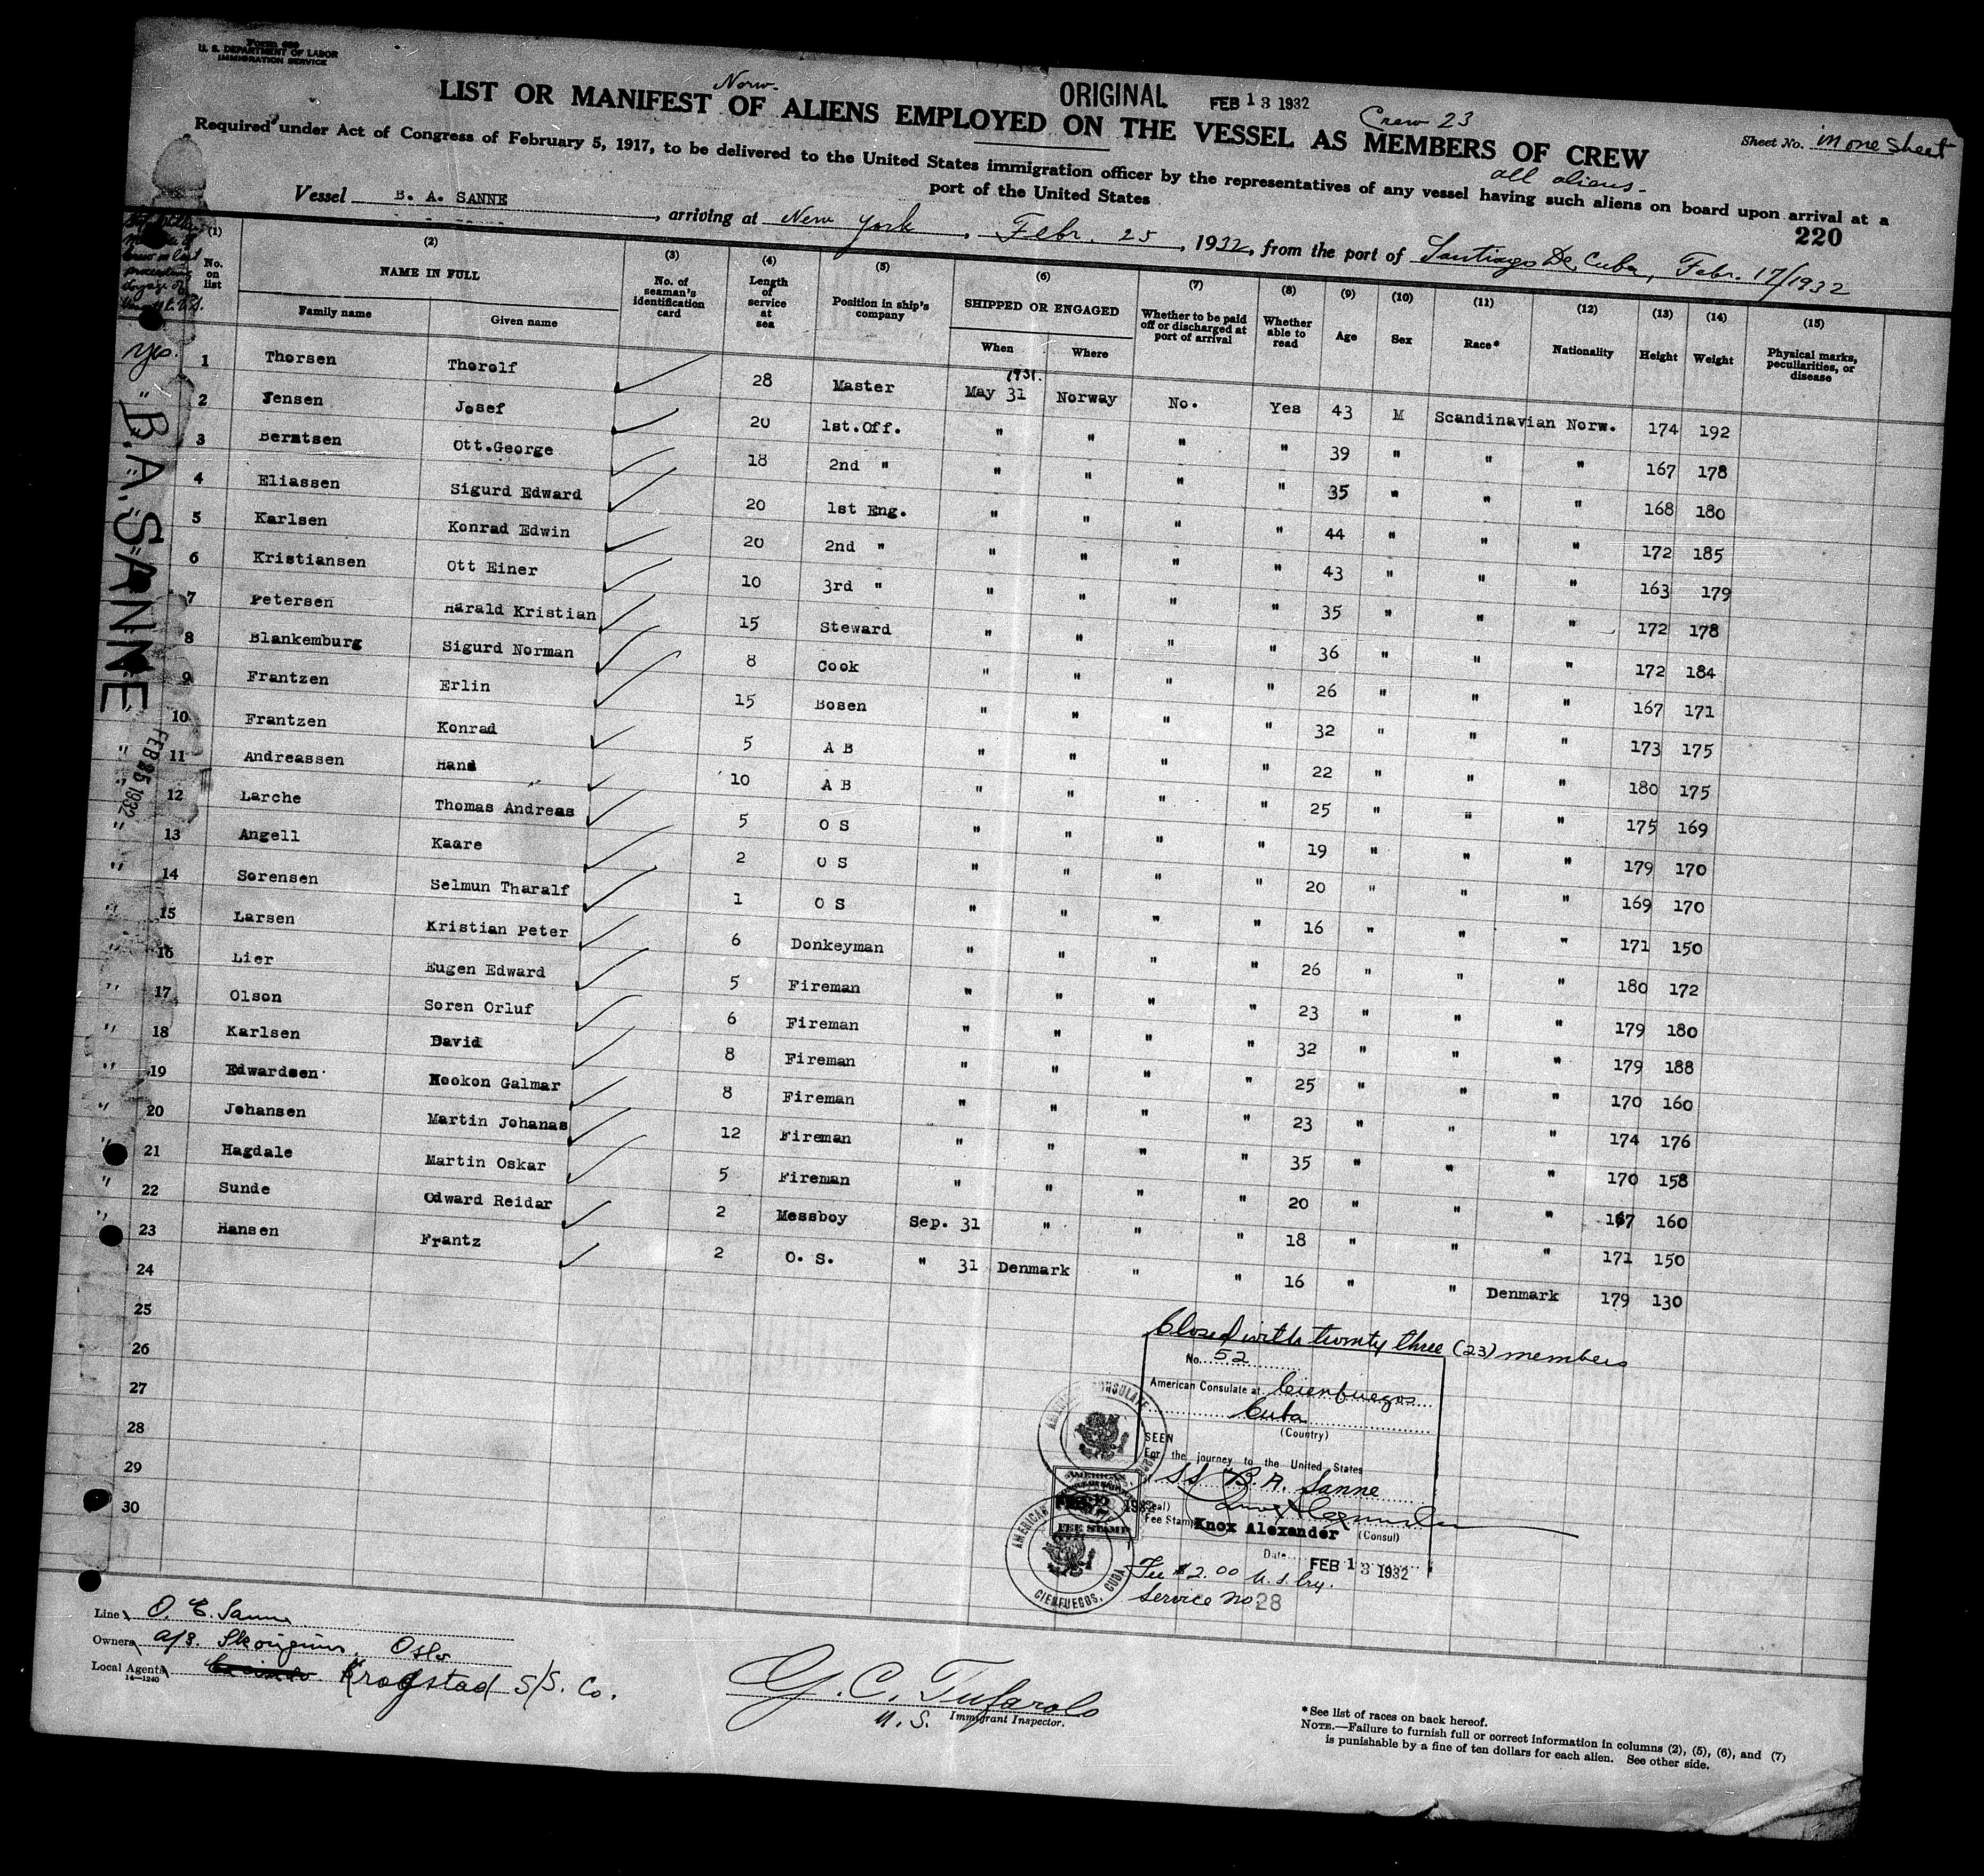 Form 689
U. S. DEPARTMENT OF LABOR
IMMIGRATION SERVICE
Norw.
ORIGINAL FEB 13 1932
Crew 23
LIST OR MANIFEST OF ALIENS EMPLOYED ON THE VESSEL AS MEMBERS OF CREW
Sheet No. in one sheet
all aliens-
Required under Act of Congress of February 5, 1917, to be delivered to the United States immigration officer by the representatives of any vessel having such aliens on board upon arrival at a
port of the United States
220
Vessel B. A. SANNE, arriving at New York, Febr. 25, 1932, from the port of Santiago De Cuba, Febr. 17/1932
(1) (2) (3) (4) (5) (6) (7) (8) (9) (10) (11) (12) (13) (14) (15)
No. on list NAME IN FULL Family name Given name No. of seaman's identification card Length of service at sea Position in ship's company SHIPPED OR ENGAGED When Where Whether to be paid off or discharged at port of arrival Whether able to read Age Sex Race* Nationality Height Weight Physical marks, peculiarities, or disease
yes. 1 Thorsen Thorolf 28 Master May 31 1931. Norway No. Yes 43 M Scandinavian Norw. 174 192
" 2 Jensen Josef 20 1st.Off. " " " " 39 " " " 167 178
3 Berntsen Ott.George 18 2nd " " " " " 35 " " " 168 180
4 Eliassen Sigurd Edward 20 1st Eng. " " " " 44 " " " 172 185
5 Karlsen Konrad Edwin 20 2nd " " " " " 43 " " " 163 179
6 Kristiansen Ott Einer 10 3rd " " " " " 35 " " " 172 178
7 Petersen Harald Kristian 15 Steward " " " " 36 " " " 172 184
8 Blankemburg Sigurd Norman 8 Cook " " " " 26 " " " 167 171
9 Frantzen Erlin 15 Bosen " " " " 32 " " " 173 175
10 Frantzen Konrad 5 A B " " " " 22 " " " 180 175
" 11 Andreassen Hans 10 A B " " " " 25 " " " 175 169
" 12 Larche Thomas Andreas 5 O S " " " " 19 " " " 179 170
" 13 Angell Kaare 2 O S " " " " 20 " " " 169 170
" 14 Sorensen Selmun Tharalf 1 O S " " " " 16 " " " 171 150
" 15 Larsen Kristian Peter 6 Donkeyman " " " " 26 " " " 180 172
" 16 Lier Eugen Edward 5 Fireman " " " " 23 " " " 179 180
" 17 Olson Soren Orluf 6 Fireman " " " " 32 " " " 179 188
" 18 Karlsen David 8 Fireman " " " " 25 " " " 170 160
" 19 Edwardsen Hookon Galmar 8 Fireman " " " " 23 " " " 174 176
" 20 Johansen Martin Johanas 12 Fireman " " " " 35 " " " 170 158
" 21 Hagdale Martin Oskar 5 Fireman " " " " 20 " " " 167 160
" 22 Sunde Odward Reidar 2 Messboy Sep. 31 " " " 18 " " " 171 150
" 23 Hansen Frantz 2 O. S. " 31 Denmark " " 16 " " Denmark 179 130
24
25
26
27
28
29
30
B.A. SANNE
FEB 25 1932
Closed with twenty three (23) members
No. 52
American Consulate at Cienfuegos
Cuba
(Country)
SEEN
For the journey to the United States
SS B. A. Sanne
(Seal)
Fee Stamp
Knox Alexander (Consul)
Date FEB 13 1932
Fee $2.00 U.S. Cry.
Service No 28
AMERICAN CONSULATE
AMERICAN
FEE STAMP
1932
AMERICAN
CIENFUEGOS, CUBA
Line O. E. Sanne
Owners Oslo
Local Agents Krogstad S/S. Co.
14—1240
G. C. Tufarolo
U. S. Immigrant Inspector.
*See list of races on back hereof.
NOTE.—Failure to furnish full or correct information in columns (2), (5), (6), and (7)
is punishable by a fine of ten dollars for each alien. See other side.